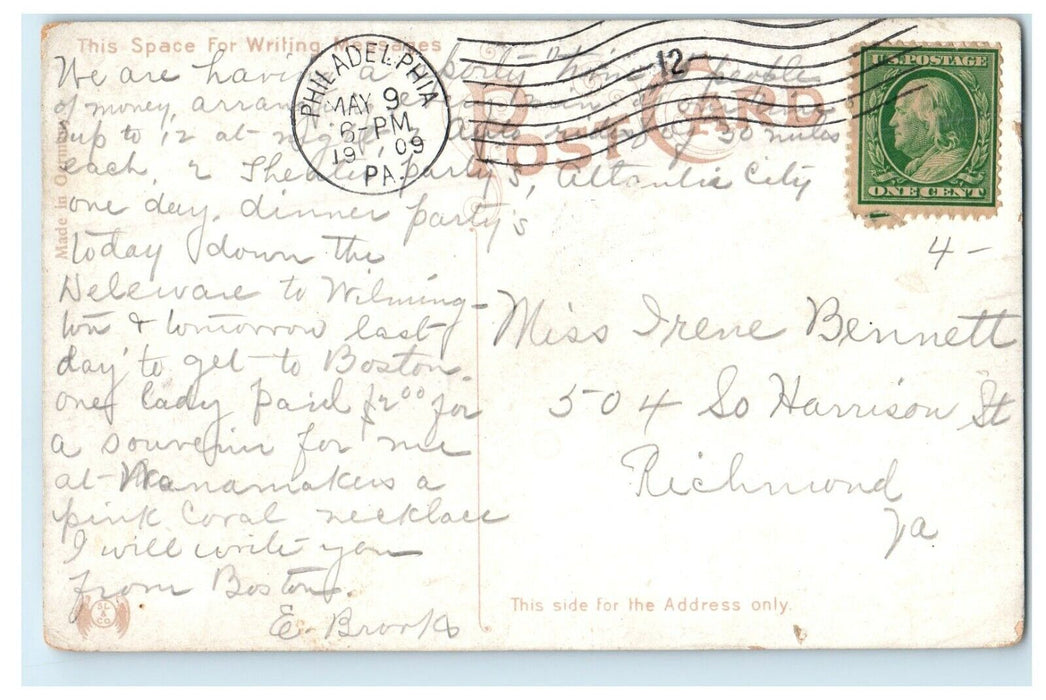 This Space For Writing Messages
We are having a party time people
of money, arran
up to 12 at night 2 Auto rides of 50 miles
each, 2 Theatre party's, Atlantic City
one day, dinner party's
today down the
Deleware to Wilming-
ton & tomorrow last
day to get to Boston.
one lady paid $2.00 for
a souvenir for me
at Wanamakers a
pink Coral necklace
I will write you
from Boston.
E. Brooks
Made in Germany
SL & CO
PHILADELPHIA
MAY 9
6-PM
1909
PA.
12
POST CARD
U.S. POSTAGE
ONE CENT
4-
Miss Irene Bennett
504 So Harrison St
Richmond
Va
This side for the Address only.